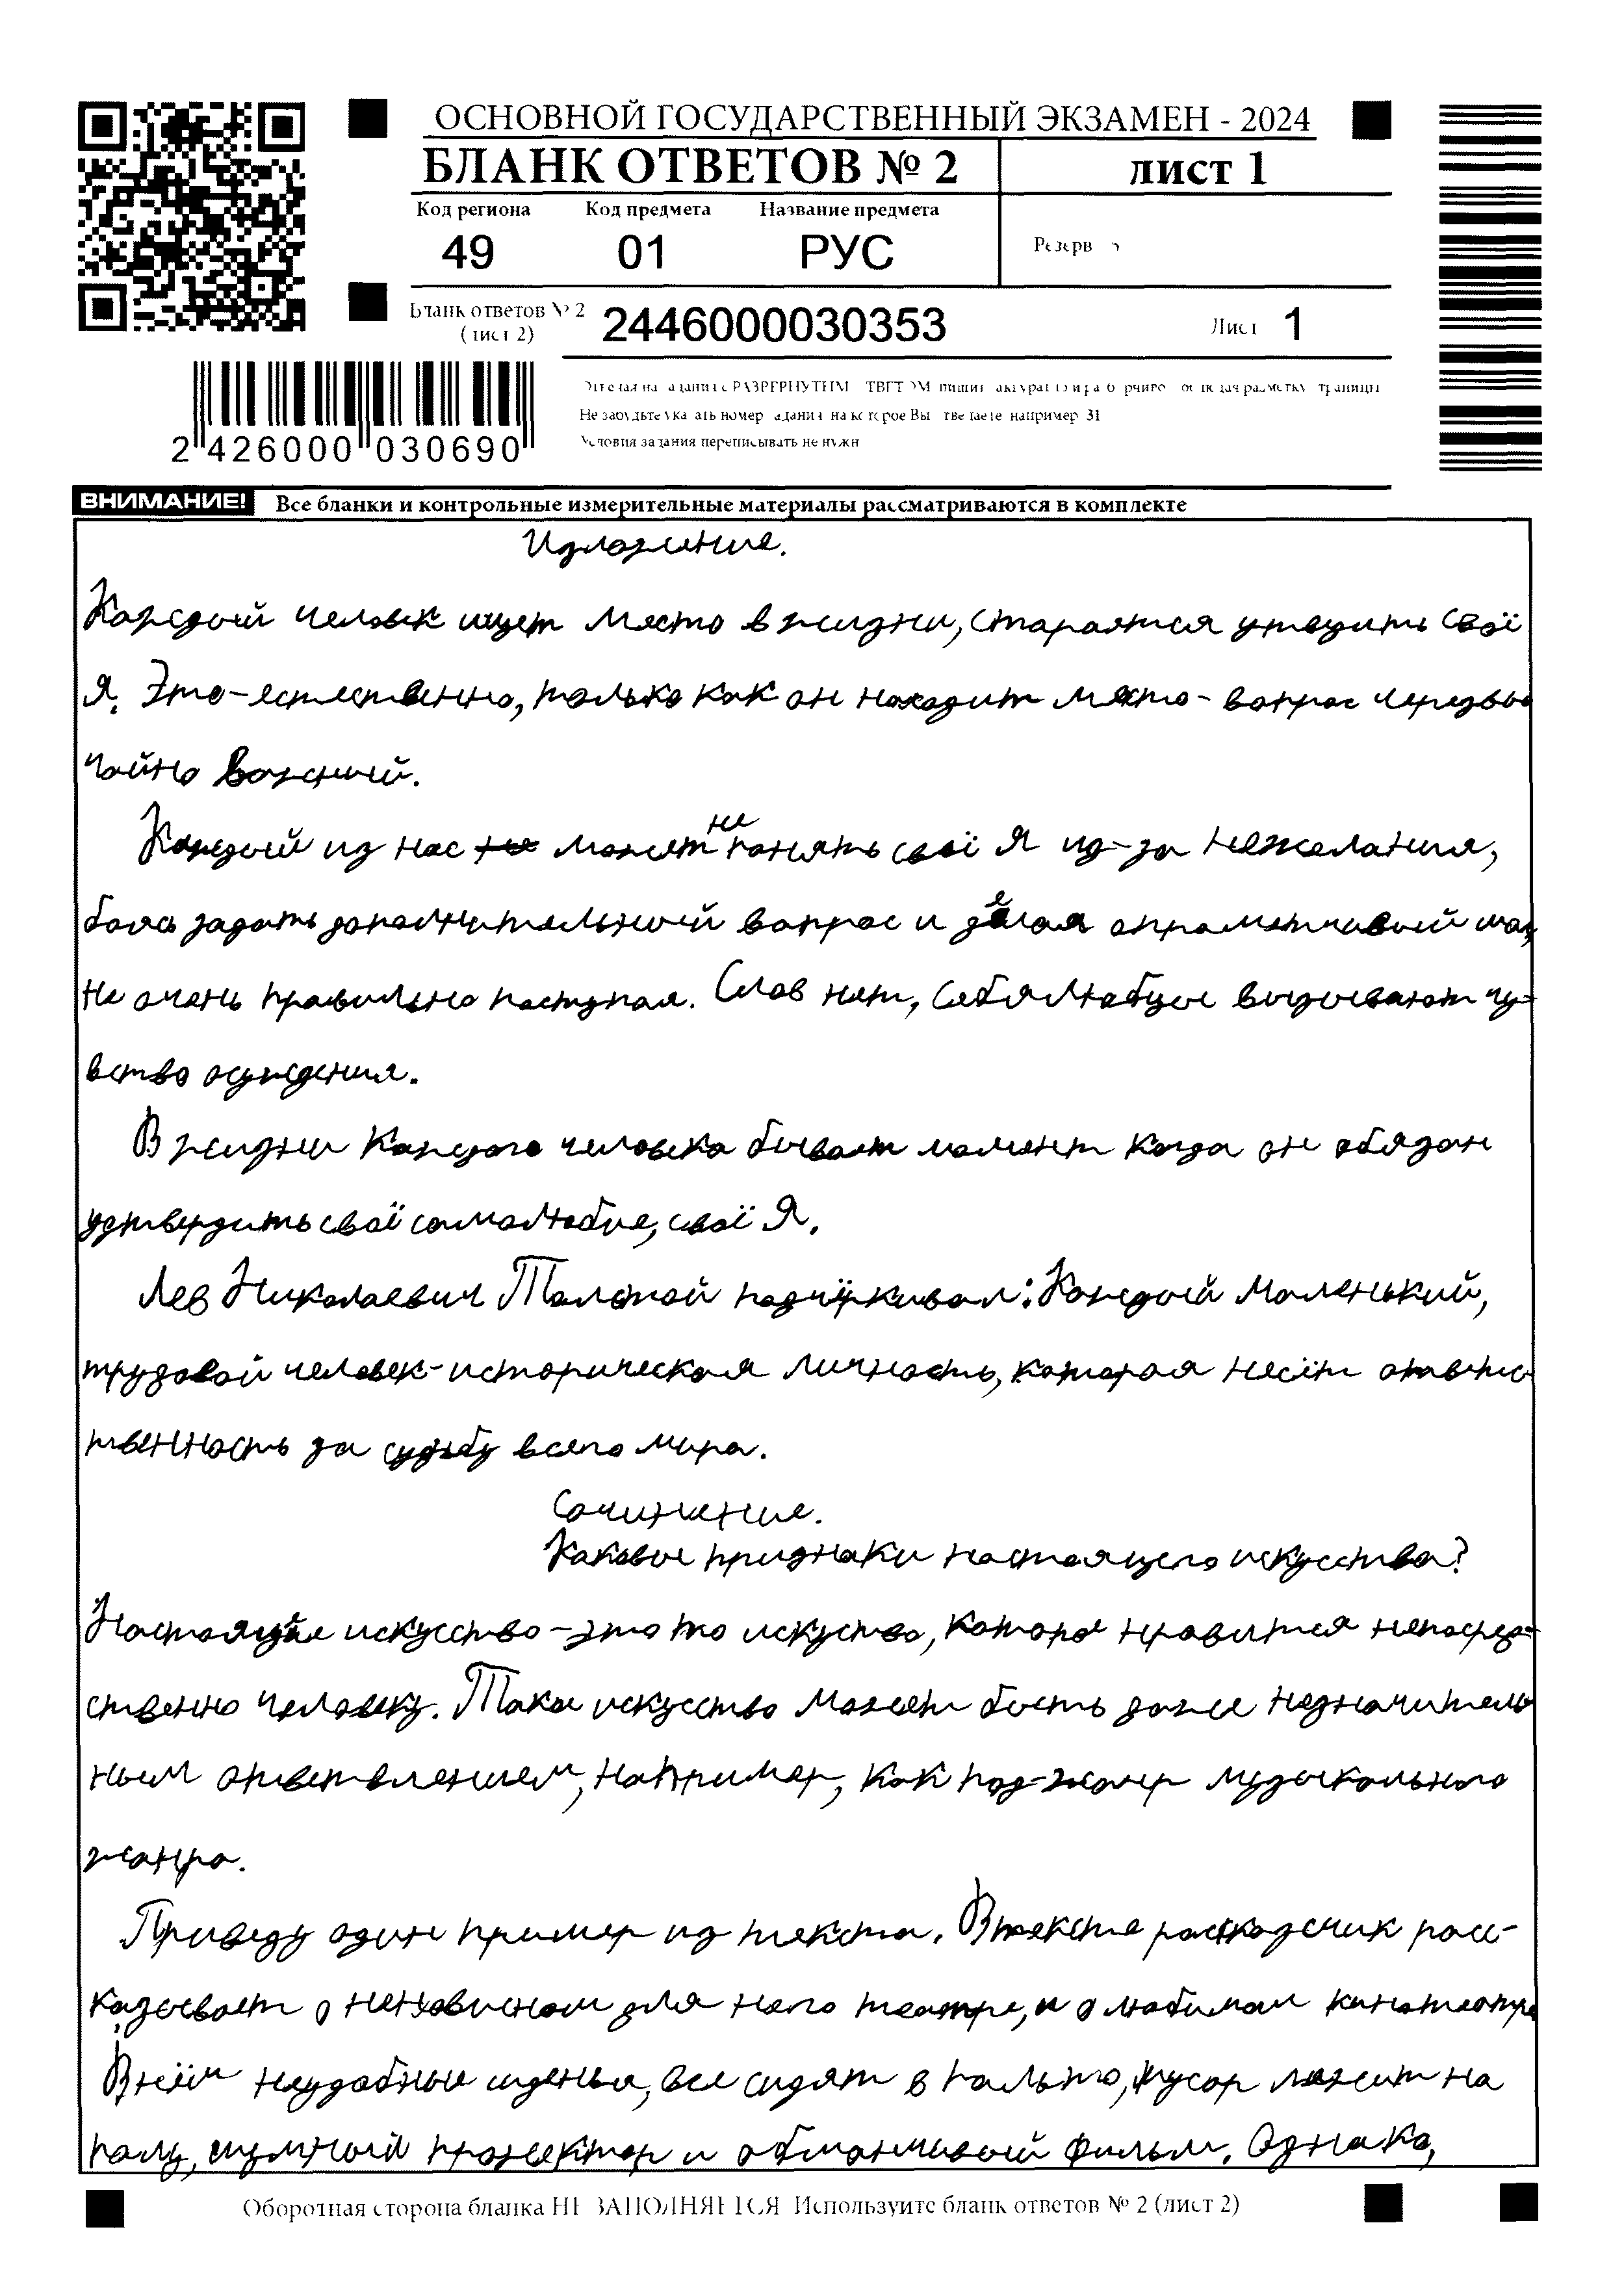 ОСНОВНОЙ ГОСУДАРСТВЕННЫЙ ЭКЗАМЕН - 2024
БЛАНК ОТВЕТОВ № 2
лист 1
Код региона Код предмета Название предмета
49 01 РУС
Резерв
Бланк ответов № 2
(лист 2)
2446000030353
Лист 1
2 426000 030690
Не забудьте указать номер задания на которое Вы отвечаете например 31
Условия задания переписывать не нужн
ВНИМАНИЕ! Все бланки и контрольные измерительные материалы рассматриваются в комплекте
Изложение.
Каждый человек ищет место в жизни, стараятся утведить своё
Я. Это-естественно, только как он находит место - вопрос черезвы
чайно важный.
Каждый из нас может не понять своё Я из-за нежелания,
боясь задать дополнительный вопрос и делая опрометчивый шаг,
не очень правильно поступая. Слов нет, себялюбцы вызывают чу-
вство осуждения.
В жизни каждого человека бывает момент когда он обязан
утвердить своё самолюбие, своё Я.
Лев Николаевич Толстой подчёркивал: Каждый маленький,
трудовой человек-историческая личность, которая несёт ответс
твенность за судьбу всего мира.
Сочинение.
Каковы признаки настоящего искусства?
Настоящее искусство - это то искуство, которое нравится непосред-
ственно человеку. Такое искусство может быть даже незначитель
ным ответвлением, например, как под-жанр музыкального
жанра.
Приведу один пример из текста. В тексте рассказчик расс-
казывает о ненавистном для него театре, и о любимом кинотеатре
В нём неудобные сиденья, все сидят в пальто, мусор лежит на
полу, шумный прожектор и обманчивый фильм. Однако,
Оборотная сторона бланка НЕ ЗАПОЛНЯЕТСЯ Используйте бланк ответов № 2 (лист 2)